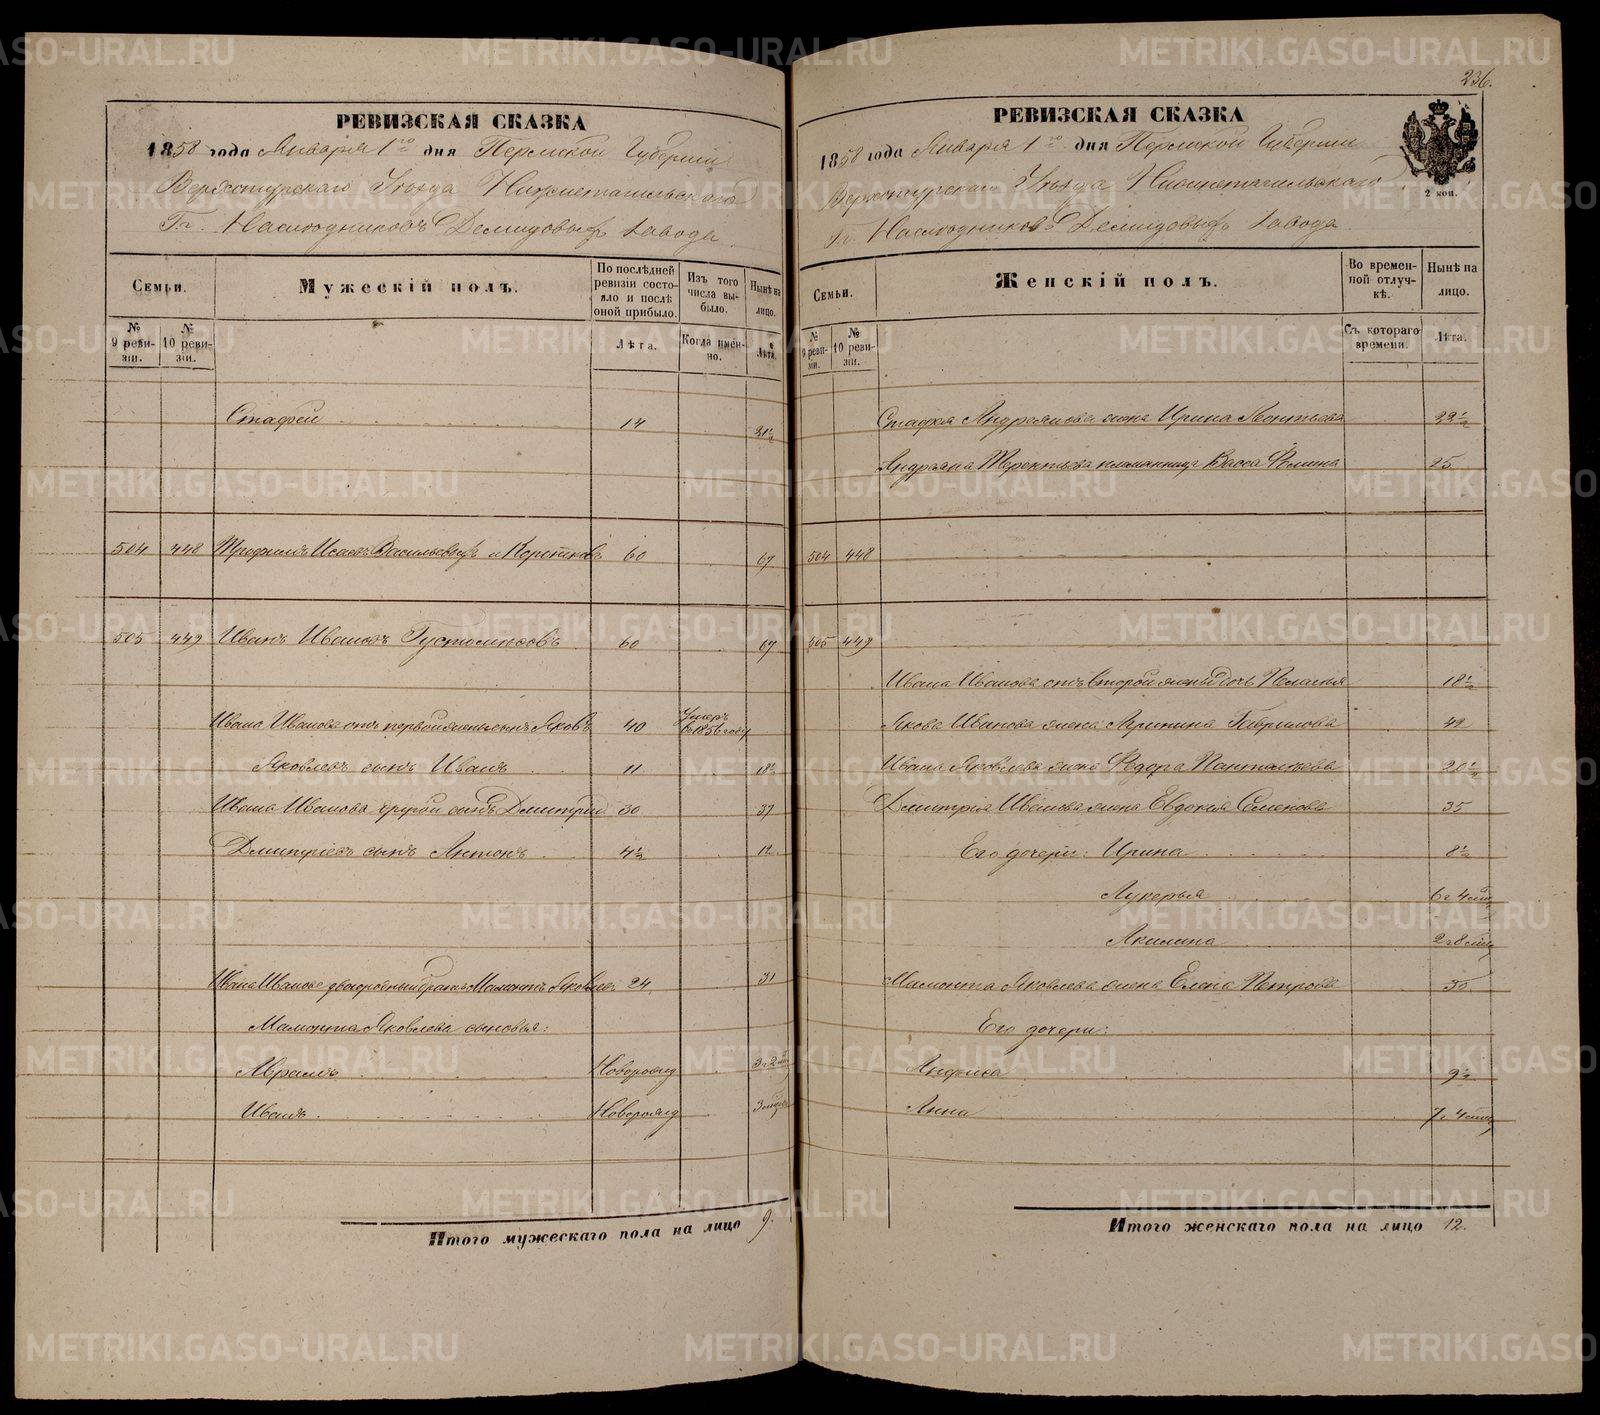 236.
РЕВИЗСКАЯ СКАЗКА
1858 года Января 1го дня Пермской Губернии
Верхотурскаго Уѣзда Нижнетагильскаго
Гг. Наслѣдниковъ Демидовыхъ Завода
Семьи.
Мужескій полъ.
По послѣдней ревизіи состояло и послѣ оной прибыло.
Изъ того числа выбыло.
Нынѣ на лицо.
№ 9 ревизіи.
№ 10 ревизіи.
Лѣта.
Когда именно.
Лѣта.
Стафей 14 21½
504 448 Трифилъ Исаевъ Васильевыхъ и Коротковъ 60 67
505 449 Иванъ Ивановъ Густомясовъ 60 67
Ивана Иванова отъ первой жены сынъ Яковъ 40 Умеръ въ 1856 году
Яковлевъ сынъ Иванъ 11 18½
Ивана Иванова другой сынъ Дмитрий 30 37
Дмитріевъ сынъ Антонъ 4½ 12
Ивана Иванова двоюродный братъ Мамонтъ Яковлевъ 24 31
Мамонта Яковлева сыновья:
Аврамъ Новорожд 3 г 2 мѣс
Иванъ Новорожд 3 мѣсяц
Итого мужескаго пола на лицо 9.
РЕВИЗСКАЯ СКАЗКА
1858 года Января 1го дня Пермской Губернии
Верхотурскаго Уѣзда Нижнетагильскаго
Гг. Наслѣдниковъ Демидовыхъ Завода
2 коп.
Семьи.
Женскій полъ.
Во временной отлучкѣ.
Нынѣ на лицо.
№ 9 ревизіи.
№ 10 ревизіи.
Съ котораго времени.
Лѣта.
Стафея Андреянова жена Ирина Леонтьева 22½
Андреяна Терентьева племянница Васса Фомина 25
504 448
505 449
Ивана Иванова отъ второй жены дочь Пелагея 18½
Якова Иванова жена Агрипина Гаврилова 49
Ивана Яковлева жена Федора Панталѣева 20½
Дмитрія Иванова жена Евдокія Семенова 35
Его дочери: Ирина 8½
Лукерья 6 г 4 мѣс
Акилина 2 г 8 мѣс
Мамонта Яковлева жена Елена Петрова 30
Его дочери:
Анфиса 9½
Анна 7 г 4 мѣс
Итого женскаго пола на лицо 12.
METRIKI.GASO-URAL.RU